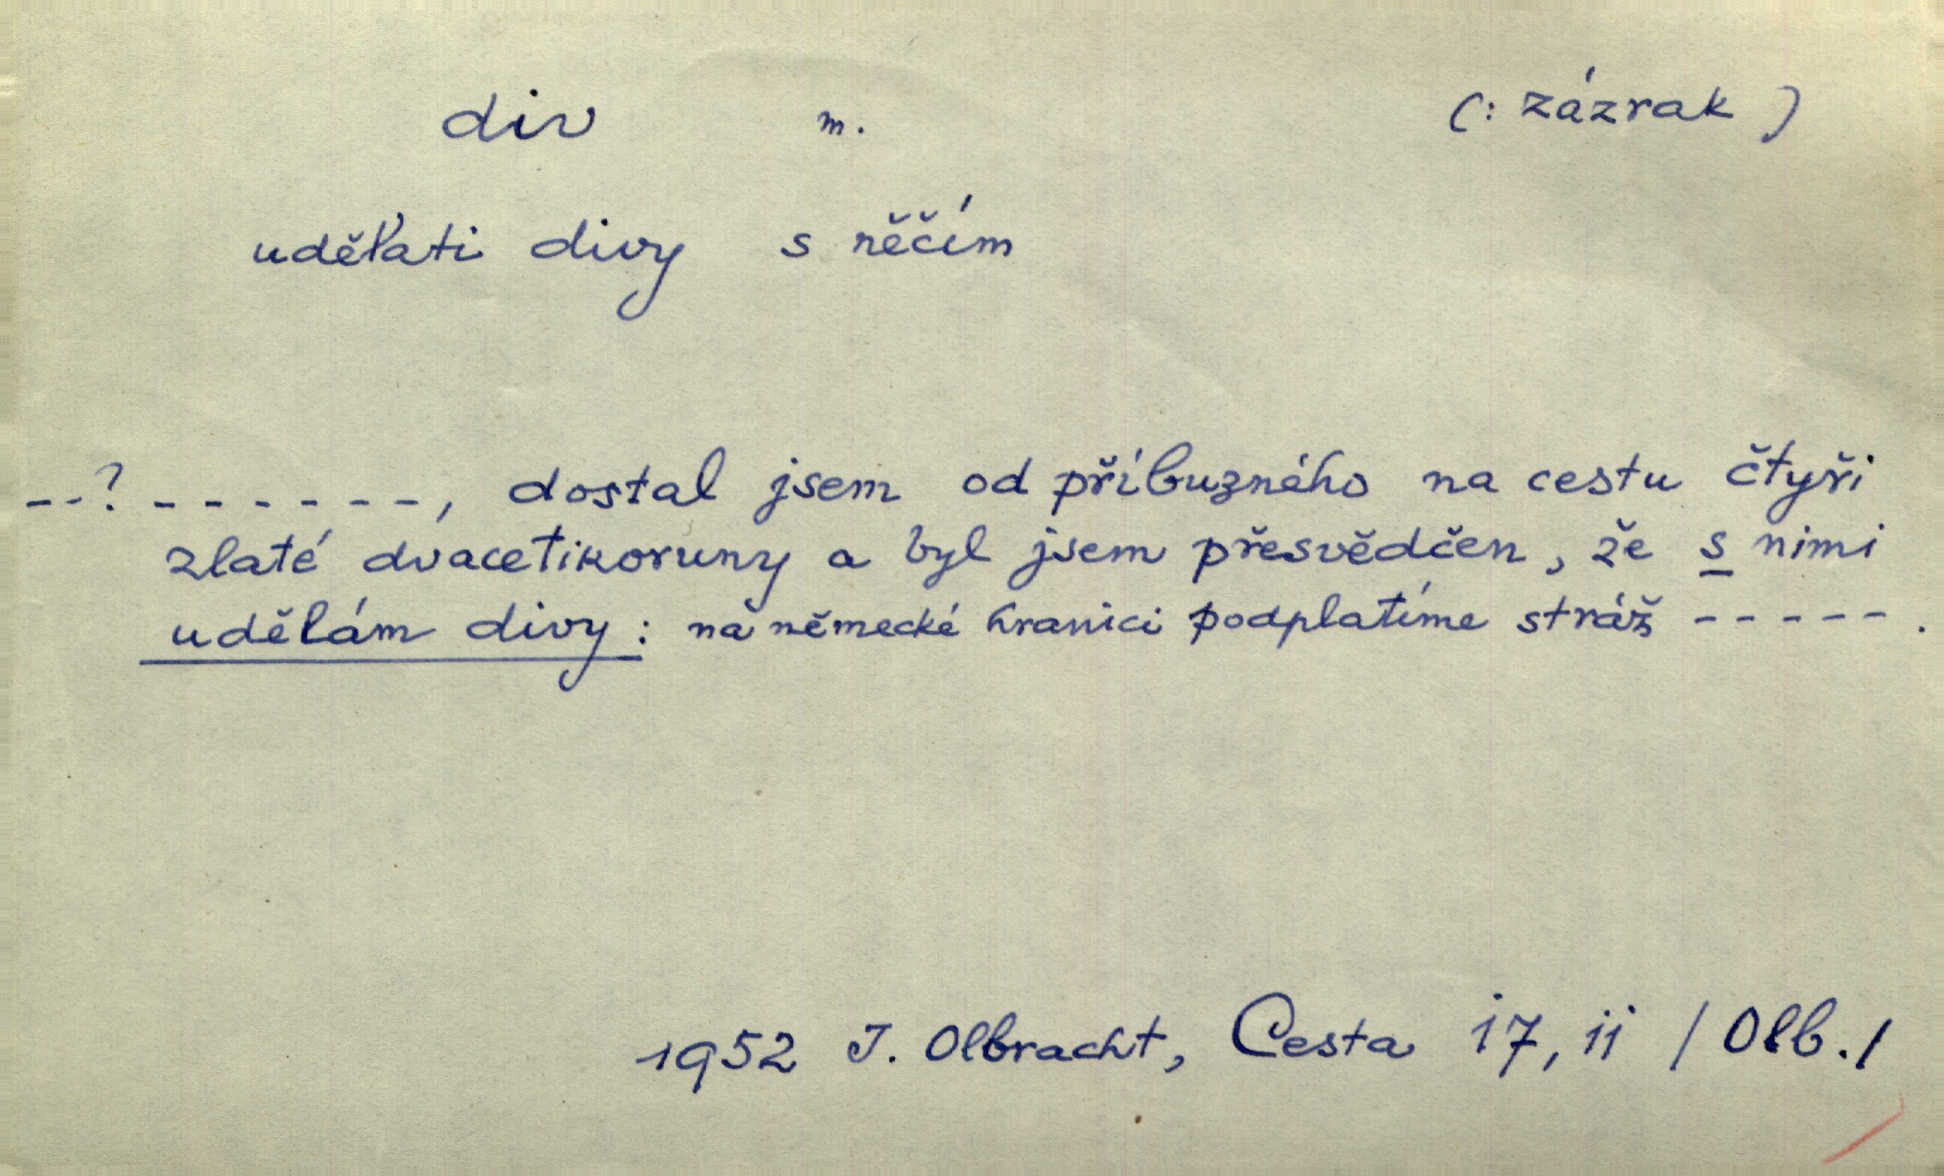 div m. (: zázrak )
udělati divy s něčím
--? ------, dostal jsem od příbuzného na cestu čtyři
zlaté dvacetikoruny a byl jsem přesvědčen, že s nimi
udělám divy : na německé hranici podplatíme stráž -----.
1952 I. Olbracht, Cesta 17, ii / Olb./